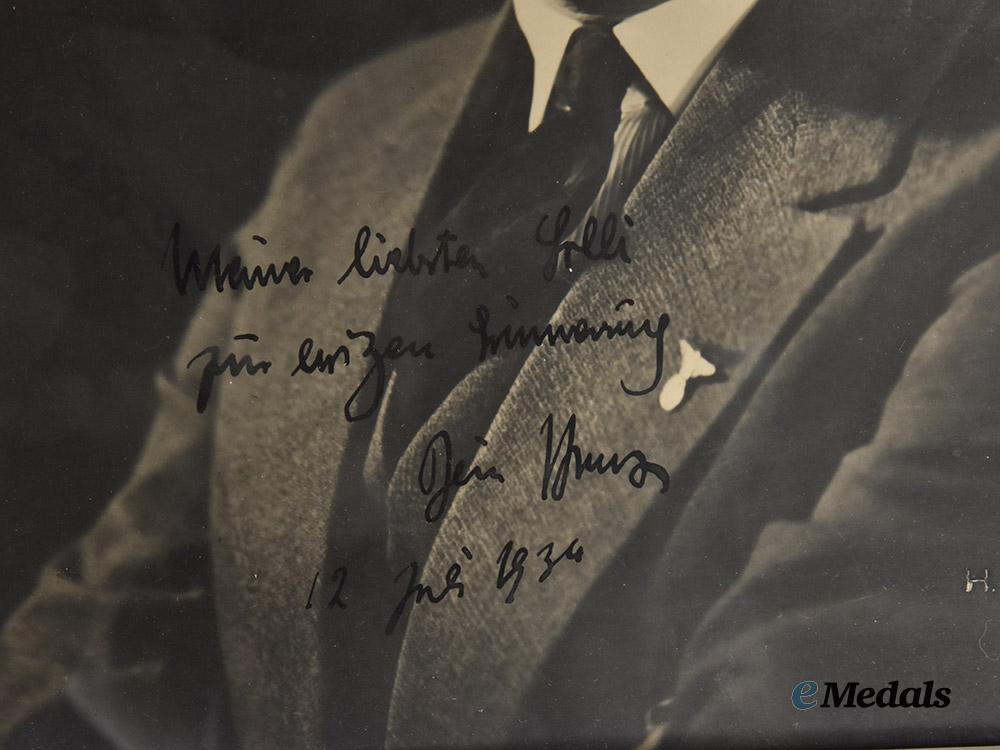 Meiner liebsten Lilli
zur ewigen Erinnerung
Dein
12 Juli 1934
H.
eMedals